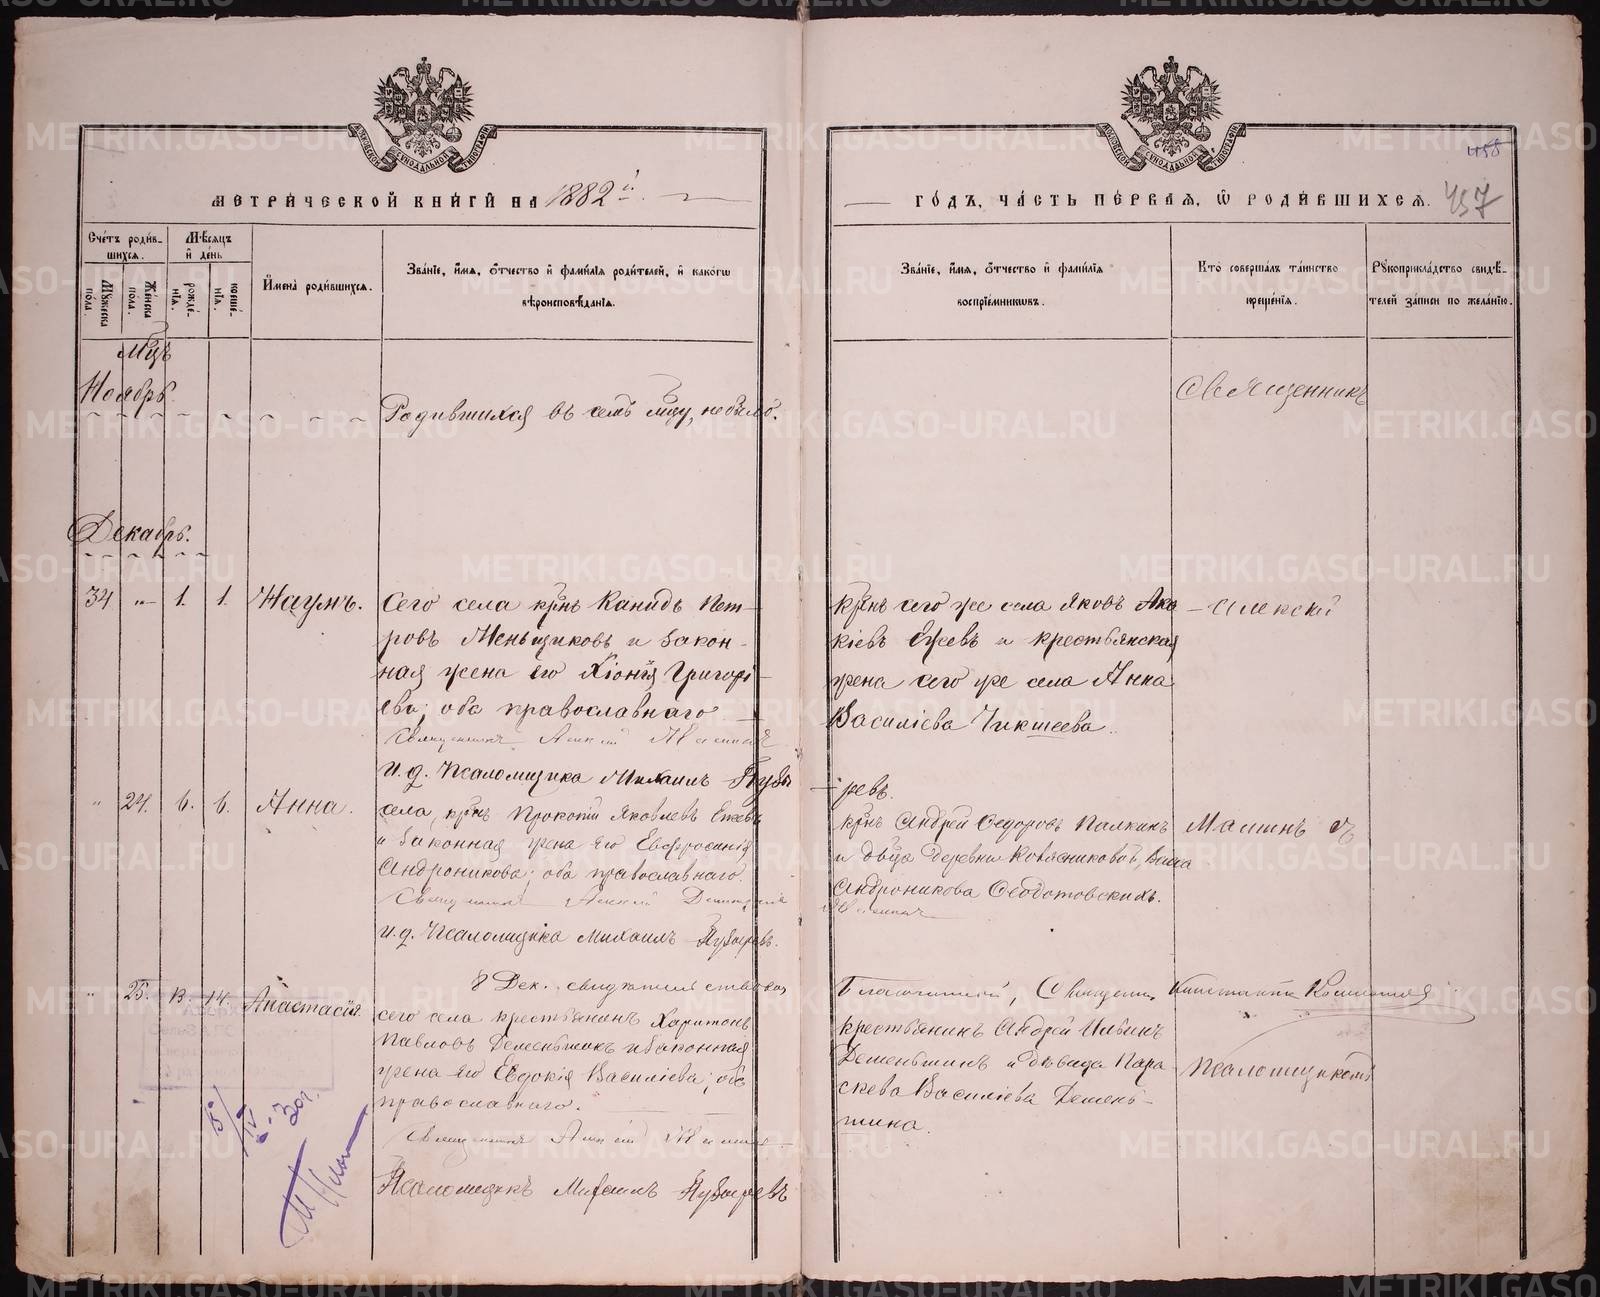 МЕТРИЧЕСКОЙ КНИГИ НА 1882 й
ГОДЪ, ЧАСТЬ ПЕРВАЯ, Ѿ РОДИВШИХСЯ.
458
457
Счетъ родив-
шихся.
Мужеска пола.
Женска пола.
Мѣсяцъ
и день
рожде-
нія.
креще-
нія.
Имена родившихся.
Званіе, имя, отчество и фамилія родителей, и какогѡ
вѣроисповѣданія.
Званіе, имя, отчество и фамилія
воспріемниковъ.
Кто совершалъ таинство
крещенія.
Рукоприкладство свидѣ-
телей записи по желанію.
Мцъ
Ноябрь.
Родившихся въ семъ мцу, небыло.
Священникъ
Декабрь.
34 „ 1. 1. Наумъ.
Сего села крнъ Канидъ Пет-
ровъ Меньщиковъ и закон-
ная жена его Хіонія Григорі-
ева; оба православнаго
Священникъ Алексій
И. д. Псаломщика Михаилъ Пузы
крнъ сего же села Яковъ Ака
кіевъ Ежевъ и крестьянская
жена сего же села Анна
Василіева Чикшеева.
- Алексій
ревъ.
„ 24. 6. 6. Анна.
села, крнъ Прокопій Яковлевъ Ежевъ
и законная жена его Евфросинія
Андроникова; оба православнаго.
Священникъ Алексій
И. д. Псаломщика Михаилъ Пузыревъ.
крнъ Андрей Ѳедоровъ Палкинъ
и двца деревни
Андроникова Ѳеодотовскихъ.
„ 25. 13. 14. Анастасія
8 Дек. свидѣтельствовал
Благочинный, Священ.
сего села крестьянинъ Харитонъ
Павловъ Деменьшинъ и законная
жена его Евдокія Василіева; оба
православнаго.
Священникъ Алексій
Псаломщикъ Михаилъ Пузыревъ
крестьянинъ Андрей Ильинъ
Деменьшинъ и дѣвица Пара-
скева Василіева Демень-
шина.
Псаломщикомъ
METRIKI.GASO-URAL.RU